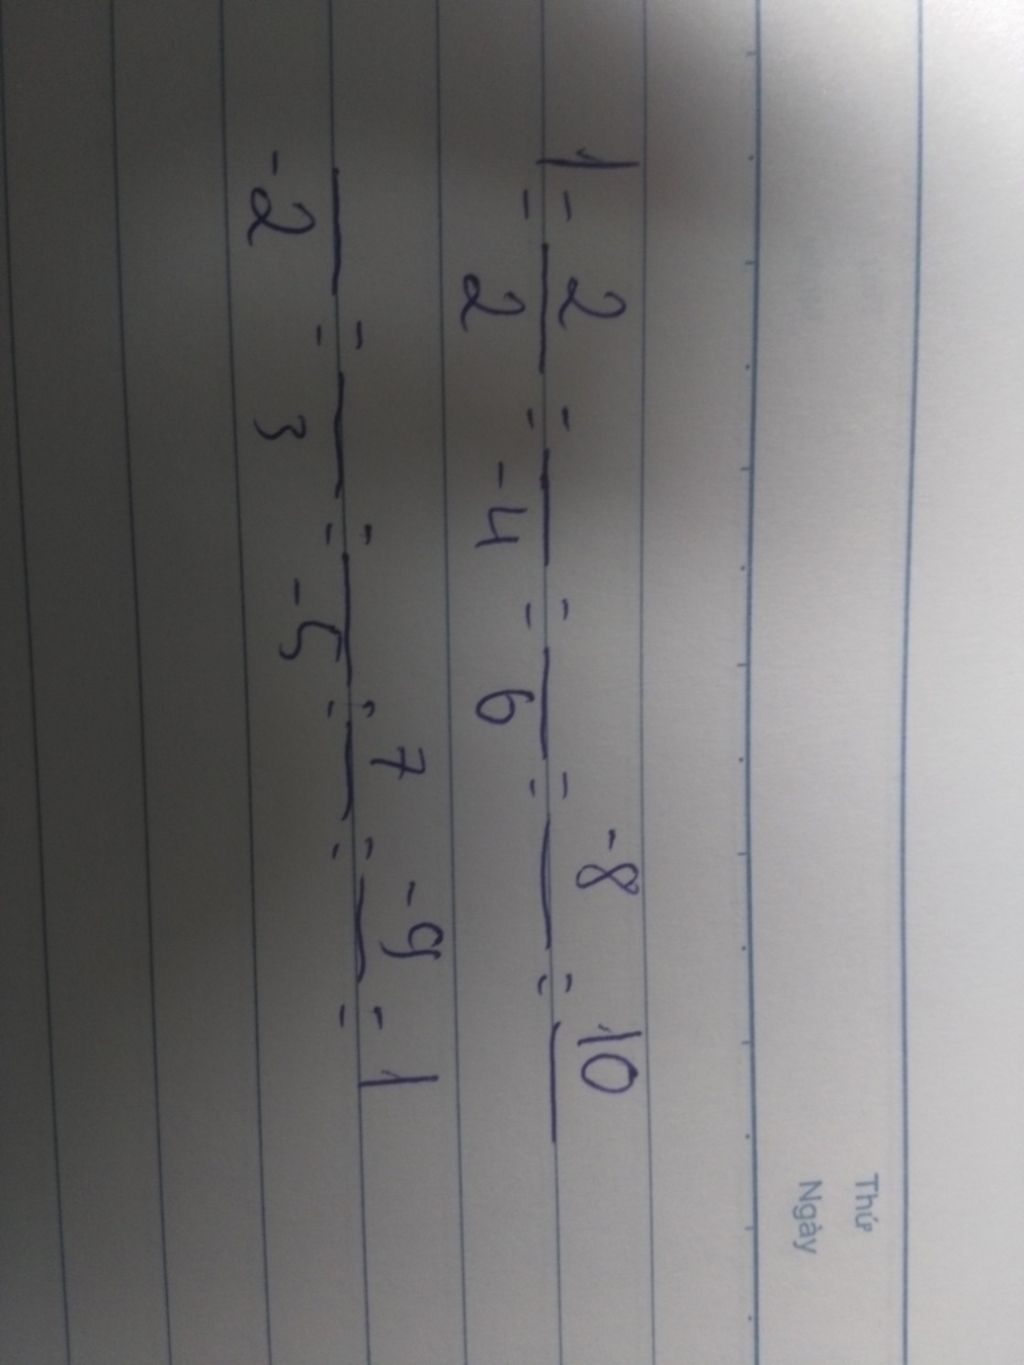 Thứ
Ngày
1 = 2/2 = /-4 = /6 = -8/ = 10/
/-2 = /3 = /-5 = 7/ = -9/ = 1